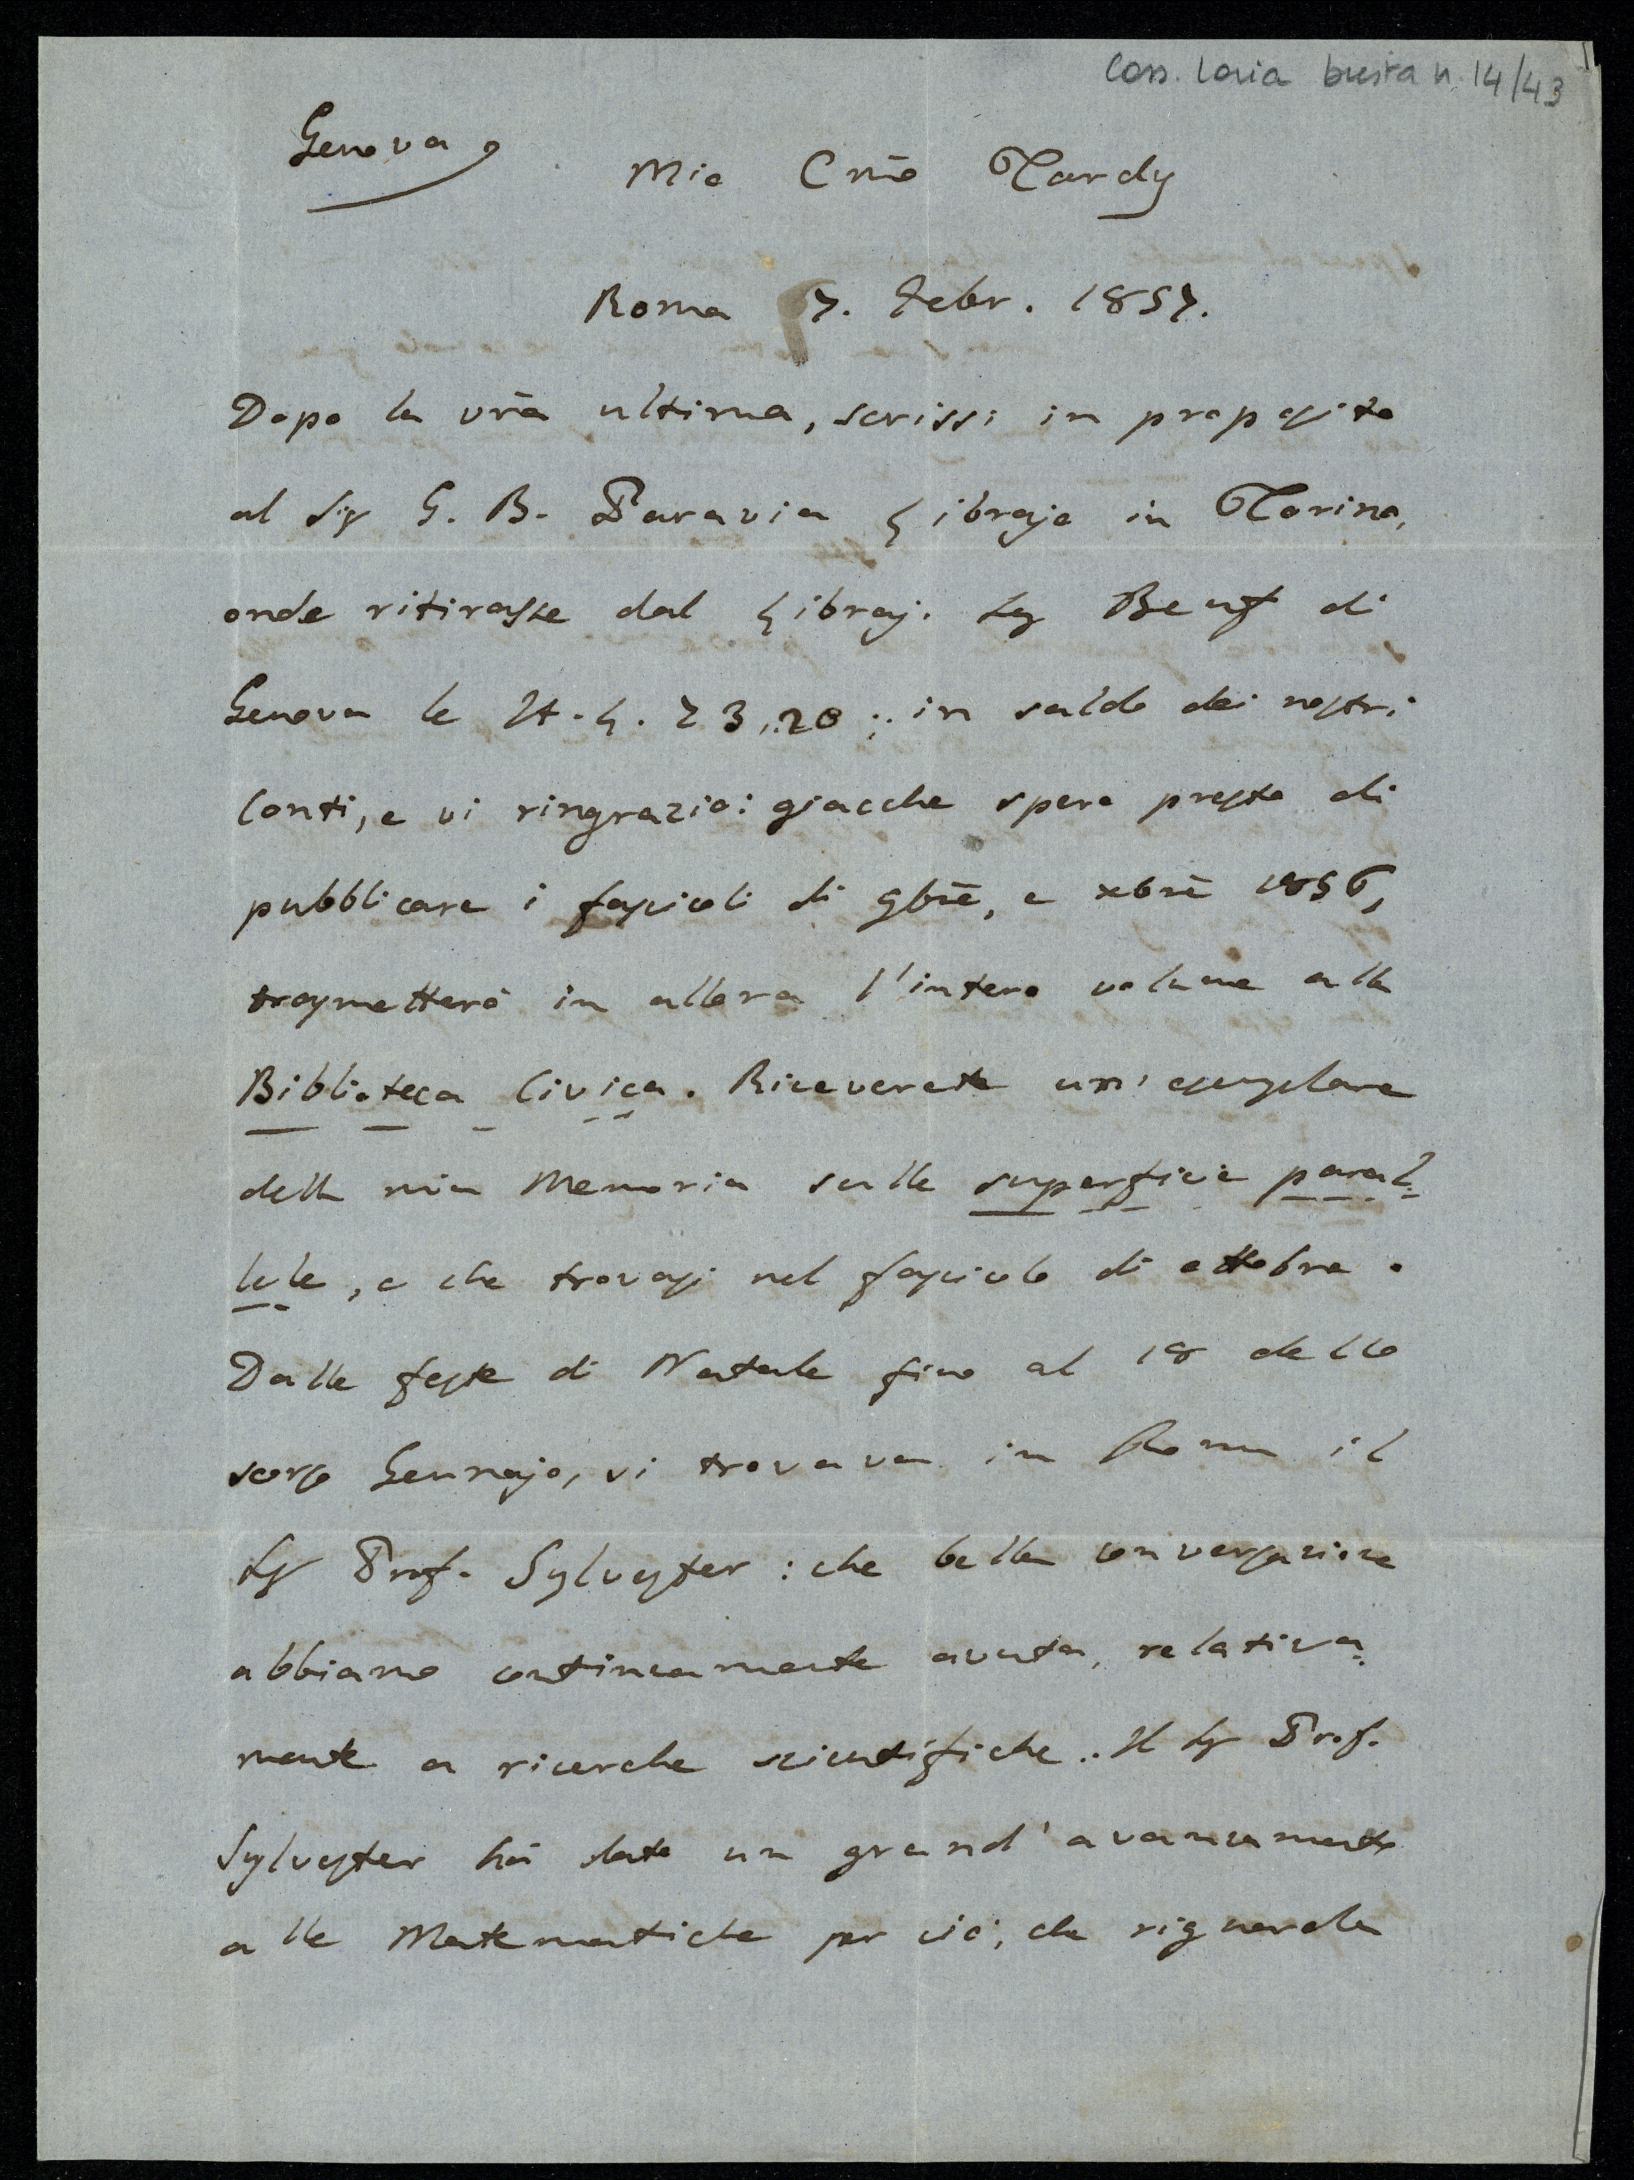 Cass. Loria busta n. 14/43
Genova
Mio Cm̄o Tardy
Roma 7. Febr. 1857.
Dopo la vr̄a ultima, scrissi in proposito
al Sig G. B. Paravia Librajo in Torino,
onde ritirasse dal Libraj. Sig Beuf di
Genova le It. L. 23,20; in saldo dei nostri
Conti, e vi ringrazio: giacche spero presto di
pubblicare i fascicoli di 9br̄e, e xbr̄e 1856,
trasmetterò in allora l'intero volume alla
Biblioteca Civica. Riceverete un'esemplare
della mia Memoria sulle superficie paral=
lele, e che trovasi nel fascicolo di ottobre.
Dalle feste di Natale fino al 18 dello
scorso Gennajo, vi trovava in Roma il
Sig Prof. Sylvester: che bella conversazione
abbiamo continuamente avuta, relativa=
mente a ricerche scientifiche. Il Sig Prof.
Sylvester há dato un grand'avanzamento
alle Matematiche per ciò, che riguarda